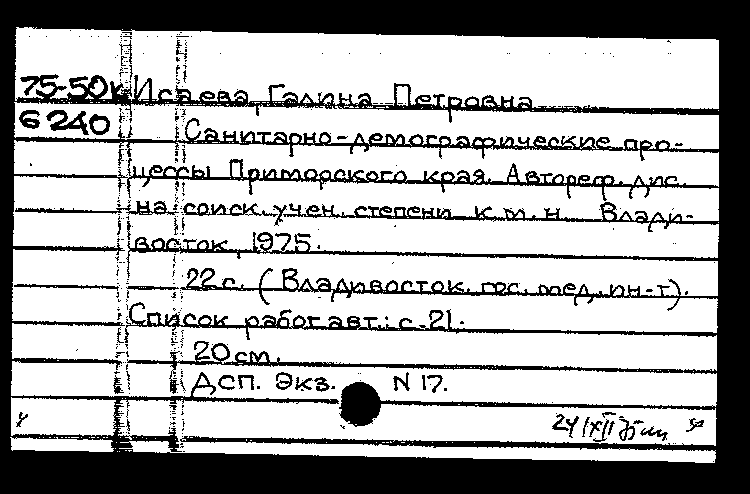 75-50к Исаева, Галина Петровна
6240 Санитарно-демографические про-
цессы Приморского края. Автореф. дис.
на соиск. учен. степени к.м.н. Влади-
восток, 1975.
22 с. (Владивосток. гос. мед. ин-т).
Список работ авт.: с. 21.
20 см.
ДСП. Экз. N 17.
24/XII 75